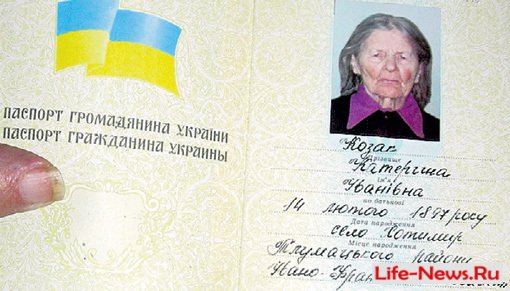 ПАСПОРТ ГРОМАДЯНИНА УКРАЇНИ
ПАСПОРТ ГРАЖДАНИНА УКРАИНЫ
Козак
Прізвище
Катерина
Ім'я
Іванівна
по батькові
14 лютого 1897 року
Дата народження
село Хотимир
Місце народження
Тлумацького району
Івано-Фран
Life-News.Ru